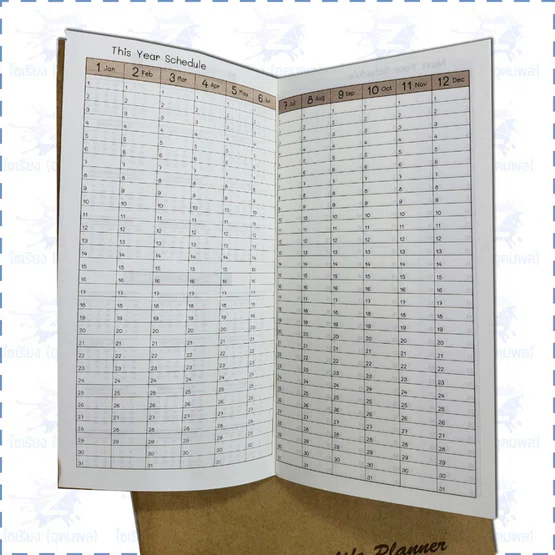 This Year Schedule
1 Jan 2 Feb 3 Mar 4 Apr 5 May 6 Jun 7 Jul 8 Aug 9 Sep 10 Oct 11 Nov 12 Dec
1 1 1 1 1 1 1 1 1 1 1 1
2 2 2 2 2 2 2 2 2 2 2 2
3 3 3 3 3 3 3 3 3 3 3 3
4 4 4 4 4 4 4 4 4 4 4 4
5 5 5 5 5 5 5 5 5 5 5 5
6 6 6 6 6 6 6 6 6 6 6 6
7 7 7 7 7 7 7 7 7 7 7 7
8 8 8 8 8 8 8 8 8 8 8 8
9 9 9 9 9 9 9 9 9 9 9 9
10 10 10 10 10 10 10 10 10 10 10 10
11 11 11 11 11 11 11 11 11 11 11 11
12 12 12 12 12 12 12 12 12 12 12 12
13 13 13 13 13 13 13 13 13 13 13 13
14 14 14 14 14 14 14 14 14 14 14 14
15 15 15 15 15 15 15 15 15 15 15 15
16 16 16 16 16 16 16 16 16 16 16 16
17 17 17 17 17 17 17 17 17 17 17 17
18 18 18 18 18 18 18 18 18 18 18 18
19 19 19 19 19 19 19 19 19 19 19 19
20 20 20 20 20 20 20 20 20 20 20 20
21 21 21 21 21 21 21 21 21 21 21 21
22 22 22 22 22 22 22 22 22 22 22 22
23 23 23 23 23 23 23 23 23 23 23 23
24 24 24 24 24 24 24 24 24 24 24 24
25 25 25 25 25 25 25 25 25 25 25 25
26 26 26 26 26 26 26 26 26 26 26 26
27 27 27 27 27 27 27 27 27 27 27 27
28 28 28 28 28 28 28 28 28 28 28 28
29 29 29 29 29 29 29 29 29 29 29 29
30 30 30 30 30 30 30 30 30 30 30 30
31 31 31 31 31 31 31 31 31 31 31 31
Planner